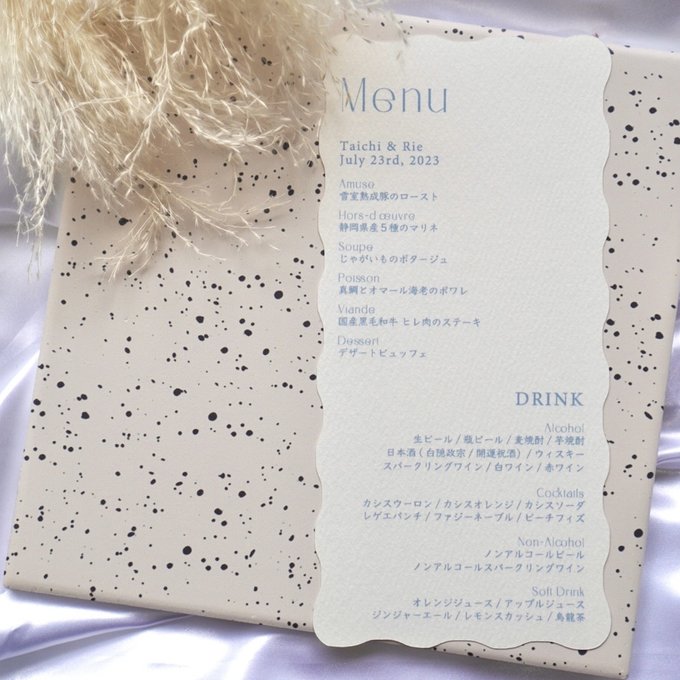 Menu
Taichi & Rie
July 23rd, 2023
Amuse
雪室熟成豚のロースト
Hors-d œuvre
静岡県産5種のマリネ
Soupe
じゃがいものポタージュ
Poisson
真鯛とオマール海老のポワレ
Viande
国産黒毛和牛 ヒレ肉のステーキ
Dessert
デザートビュッフェ
DRINK
Alcohol
生ビール / 瓶ビール / 麦焼酎 / 芋焼酎
日本酒 ( 白隠政宗 / 開運祝酒 ) / ウィスキー
スパークリングワイン / 白ワイン / 赤ワイン
Cocktails
カシスウーロン / カシスオレンジ / カシスソーダ
レゲエパンチ / ファジーネーブル / ピーチフィズ
Non-Alcohol
ノンアルコールビール
ノンアルコールスパークリングワイン
Soft Drink
オレンジジュース / アップルジュース
ジンジャーエール / レモンスカッシュ / 烏龍茶